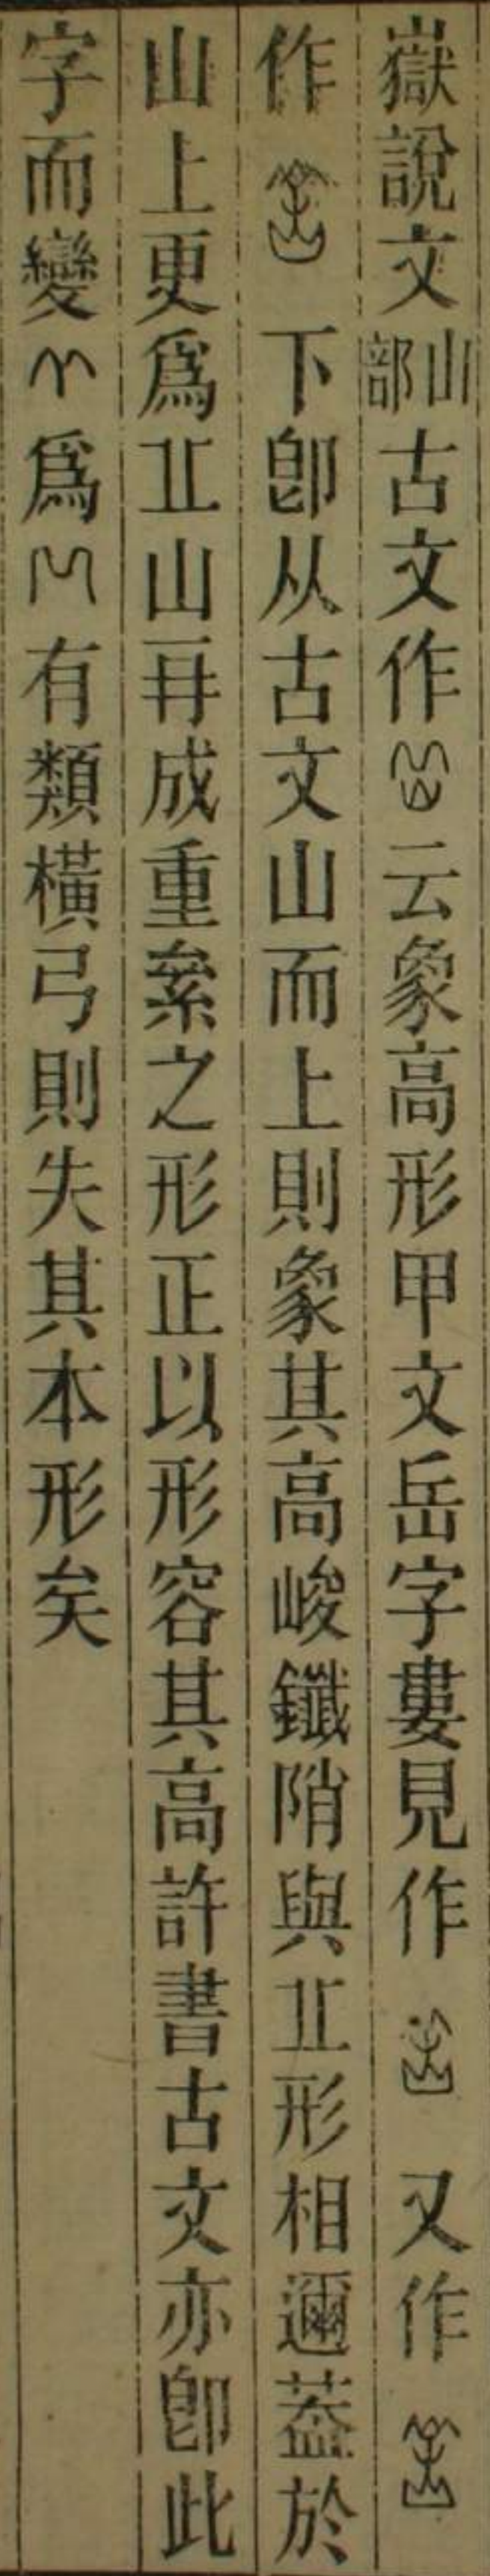 嶽說文山部古文作云象高形甲文岳字婁見作又作
作下卽从古文山而上則象其高峻鑯陗與丠形相邇葢於
山上更爲丠山再成重絫之形正以形容其高許書古文亦卽此
字而變爲有類橫弓則失其本形矣